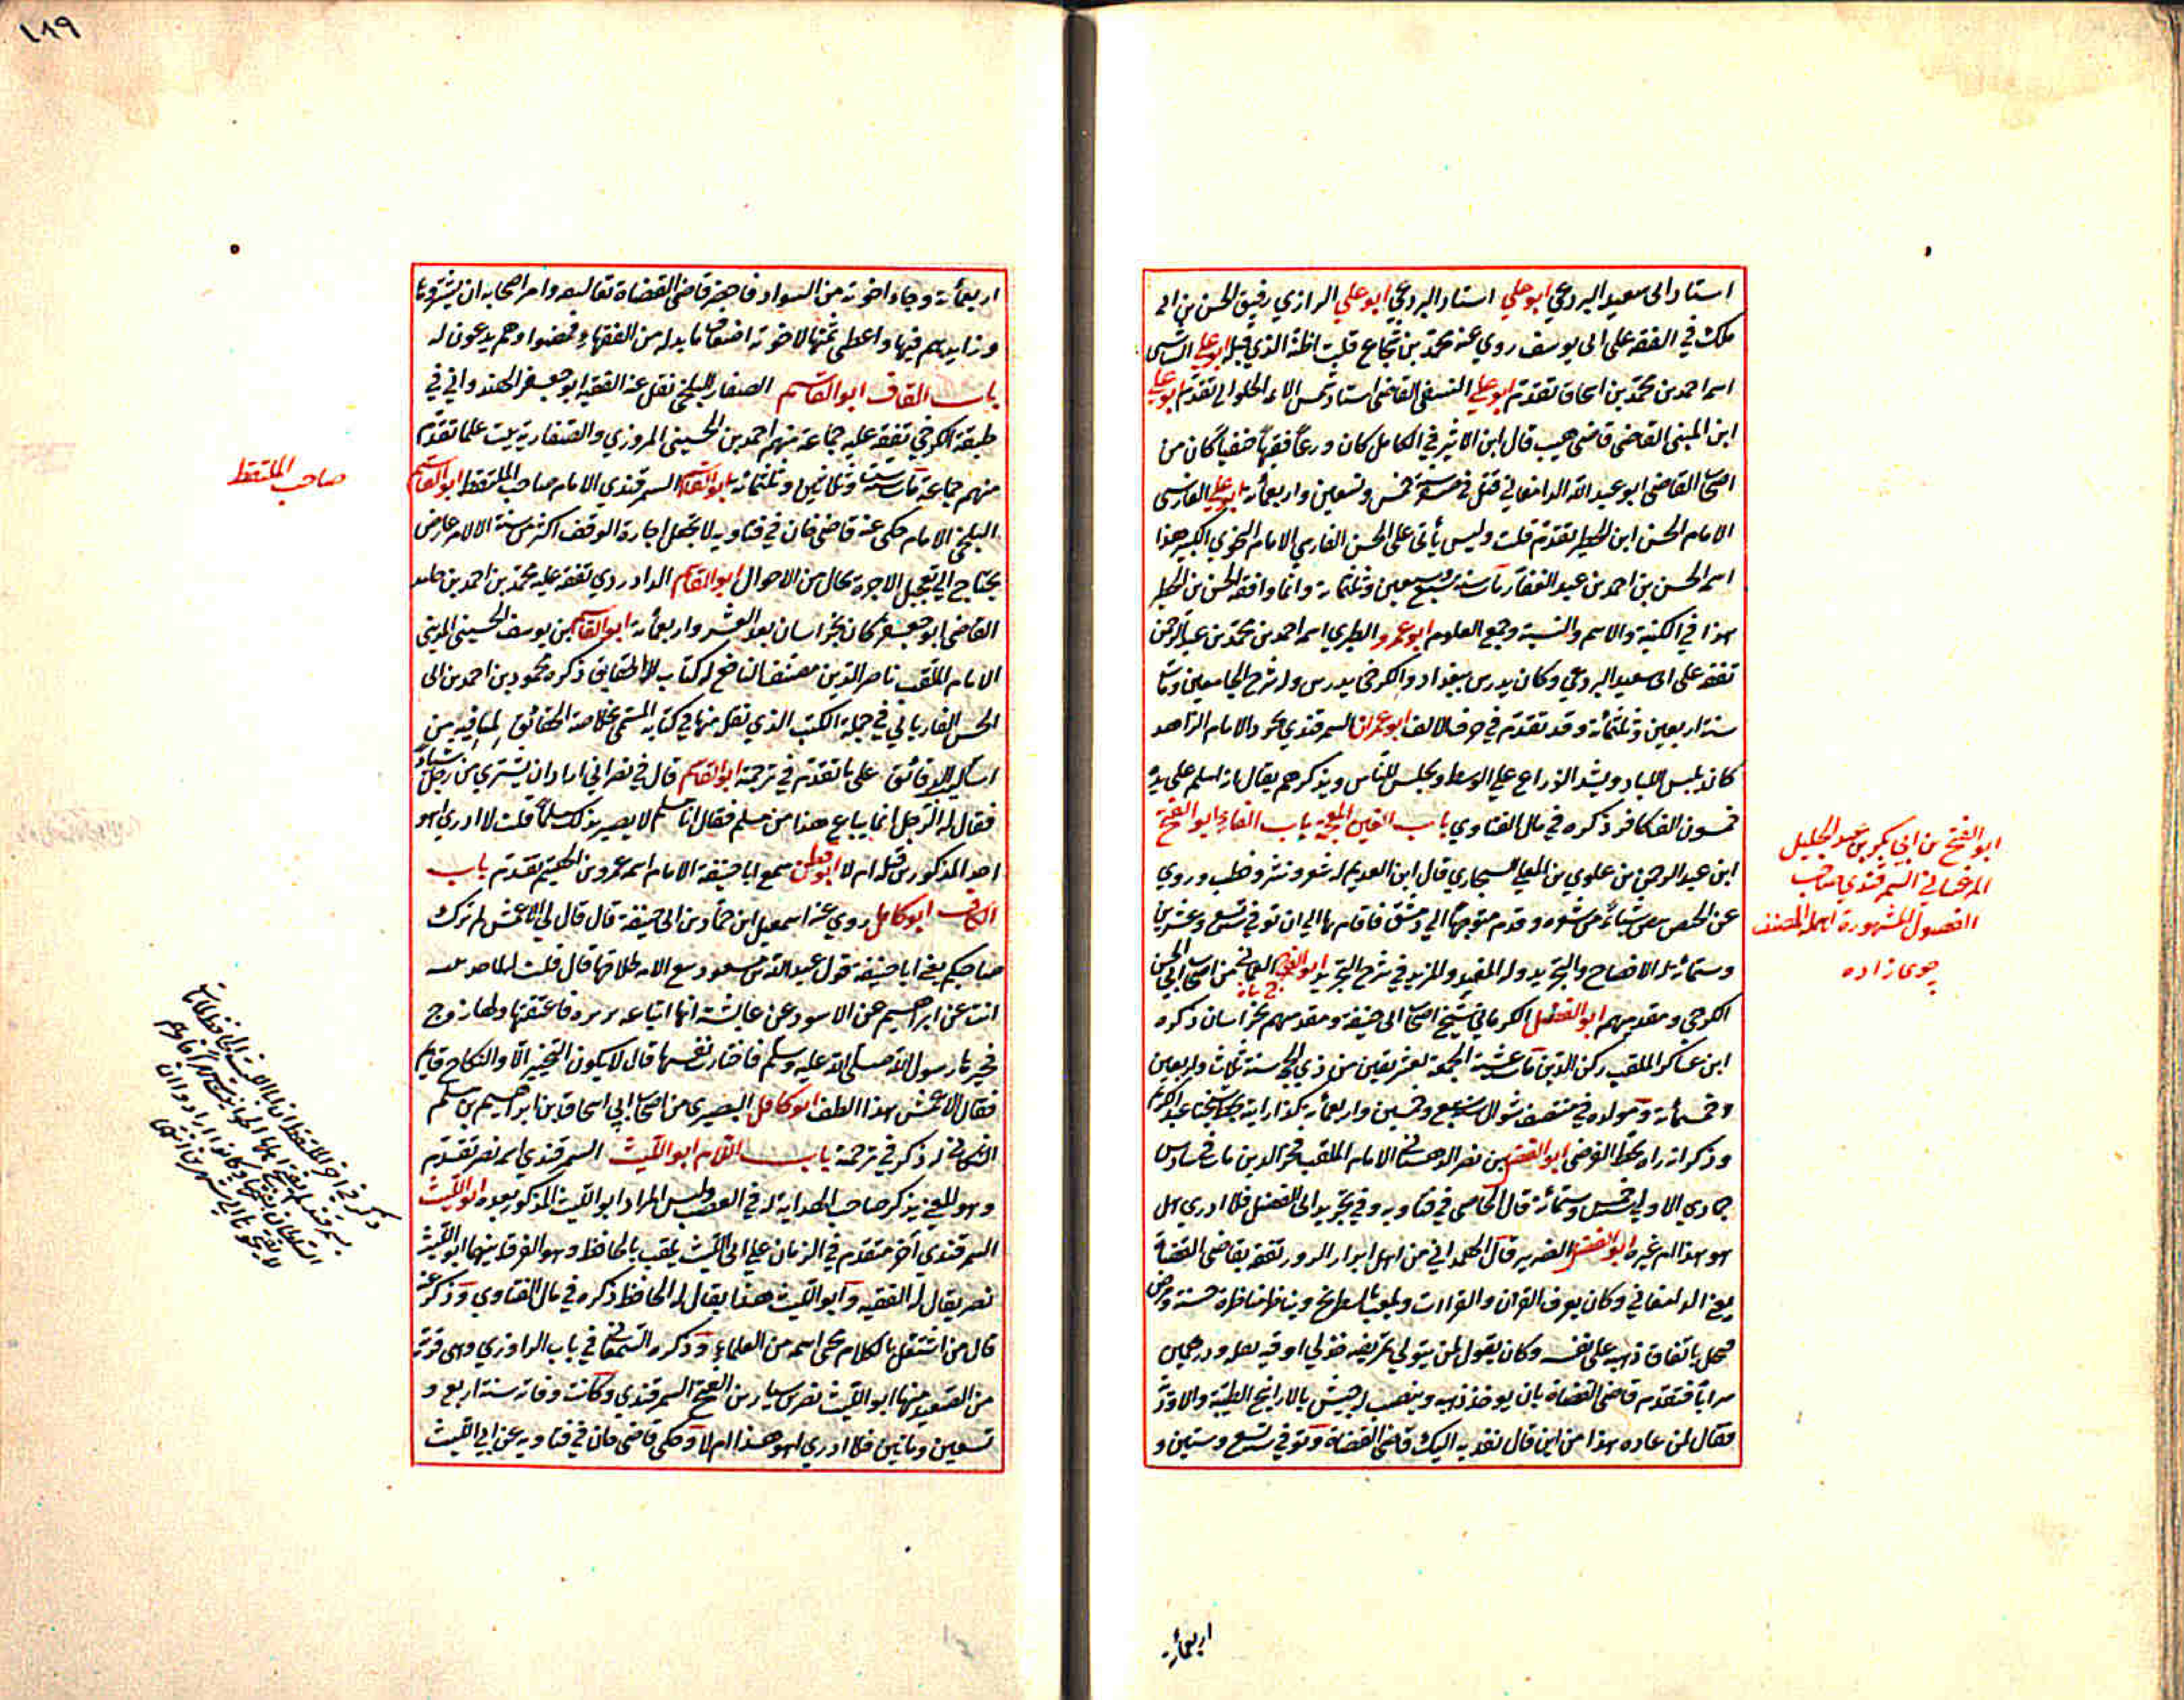 استاد ابى سعيد البردعي ابو علي استاد البردعي ابو علي الرازي رفيق الحسن بن ابى
ملك في الفقه على ابى يوسف روي عنه محمد بن شجاع قلت اظنه الذي قبله ابو علي الشاشى
اسمه احمد بن محمد بن اسحاق تقدم ابو علي النسفى القاضى استاد شمس الائمة الحلوانى تقدم ابو علي
ابن المبنى القاضى قاضى قال ابن الاثير في الكامل كان ورعا فقيها حنفيا كان من
اصحاب القاضى ابو عبد الله الدامغانى قتل في سنة خمس وتسعين واربعمأئة ابو علي الفارسى
الامام الحسن ابن الخطير تقدم قلت وليس يأتى على الحسن الفارسي الامام النحوي الكبير هذا
اسمه الحسن بن احمد بن عبد الغفار مات سنة سبع وسبعين وثلثمائة وانما وافقه الحسن بن الخطير
هذا في الكنية والاسم والنسبة وجمع العلوم ابو عمرو الطبري اسمه احمد بن محمد بن عبد الرحمن
تفقه على ابى سعيد البردعي وكان يدرس ببغداد والكرخى يدرس وله شرح الجامعين ومات
سنة اربعين وثلثمائة وقد تقدم في حرف الالف ابو عمران السمرقندي محمود الامام الزاهد
كان يلبس اللباد ويشد الزراع علي الوسط ويجلس للناس ويذكرهم يقال بانه اسلم على يده
خمسون الف كافر ذكره في مال الفتاوي باب الغين المعجمة باب الفاء ابو الفتح
ابن عبد الرحمن بن علوي بن المعلى السنجاري قال ابن العديم له شعر ونثر وخطب وروي
عن الحيص بيص شياء من شعره وقدم متوجها الي دمشق فاقام بها الي ان توفي تسع وعشرين
وستمائة له الافصاح والتجريد وله المفيد والمزيد في شرح التجريد ابو الفرج من اصحاب ابي الحسن
الكرخي ومقدمهم ابو الفضل الكرماني شيخ اصحاب ابى حنيفة ومقدمهم بخراسان ذكره
ابن عساكر الملقب ركن الدين مات عشية الجمعة لعشر بقين من ذي الحجة سنة ثلاث واربعين
وخمسمأئة ومولده في منتصف شوال سنة سبع وخمسين واربعمأئة هكذا رايته بخط شيخنا عبد الكريم
وذكر انه راه بخط الفرضى ابو الفضل بن نصر الدهستانى الامام الملقب فخر الدين مات في سادس
جمادي الاولى خمس وستمائة قال الخاصى في فتاويه وفي تجريد ابى الفضل فلا ادري اهل
هو هذا ام غيره ابو الفضل الضرير قال الهمداني من اهل الرور تفقه بقاضى القضاة
يعنى الدامغانى وكان يعرف القران والقراات ويلعب بالشطرنج ويناظر مناظرة حسنة ومرض
فحمل باتفاق ذهبه على نفسه وكان يقول لمن يتولي تمريضه خذلي اوقيه بصله ودرهمين
فتقدم قاضى القضاة بان يوخذ ذهبه وينصب له جيش بالارايح الطيبة والاوز
فقال لمن عاده هذا من اين قال نفذ به اليك قاضى القضاة وتوفي سنة تسع وستين و
ابو الفتح بن ابى بكر بن عبد الجليل
المرغينانى السمرقندي صاحب
الفصول المشهورة اهمله المصنف
جوى زاده
اربعمأئة
١٨٩
اربعمأئة وجاء اخوته من السواد فاحضر قاضى القضاة ثقاله وامر اصحابه ان يشتروها
وزايدهم فيها واعطى ثمنها لاخوته اضعاف ما بدله من الفقهاء فمضوا وهم يدعون له
باب القاف ابو القاسم الصفار البلخى نقل عنه الفقيه ابو جعفر الهندوانى في
طبقة الكرخى تفقه عليه جماعة منهم احمد بن الحسين المروزي والصفارية بيت علماء تقدم
منهم جماعة مات ست وثلاثين وثلثمائة ابو القاسم السمرقندي الامام صاحب الملتقط ابو القاسم
البلخى الامام حكى عنه قاضى خان في فتاويه لا تجعل اجارة الوقف اكثر من سنة الا لامر عارض
يحتاج الي تعجيل الاجرة بحال من الاحوال ابو القاسم الداودي تفقه عليه محمد بن احمد بن حامد
القاضى ابو جعفر كان بخراسان بعد العشر واربعمأئة ابو القاسم بن يوسف الحسينى المدينى
الامام الملقب ناصر الدين مصنف النافع له كتاب الحقايق ذكره محمود بن احمد بن ابى
الحسن الفاريابى في جملة الكتب الذي نقل منها في كتابه المسمى بخلاصة الحقائق لما فيه من
اساليب الدقائق على ما تقدم في ترجمة ابو القاسم قال في نصرانى اراد ان يشتري من رجل شياء
فقال له الرجل انما يباع هذا من مسلم فقال انا مسلم لا يصير بذلك مسلما قلت لا ادري اهو
احد المذكورين قبله ام لا ابو قطن سمع ابا حنيفة الامام اسمه عمرو بن الهيثم تقدم باب
الكاف ابو كامل روي عنه اسمعيل ابن حماد بن ابى حنيفة قال قال لي الاعمش لم ترك
صاحبكم يعنى ابا حنيفة قول عبد الله بن مسعود بيع الامة طلاقها قال قلت له
انت عن ابراهيم عن الاسود عن عايشة انها ابتاعت بريره فاعتقتها ولها زوج
فخيرها رسول الله صلى الله عليه وسلم فاختارت نفسها قال لا يكون التخيير الا والنكاح قايم
فقال الاعمش هذا الطف ابو كامل البصيري من اصحاب ابي اسحاق بن ابراهيم بن مسلم
له ذكر في ترجمة باب اللام ابو الليث السمرقندي اسمه نصر تقدم
وهو المعنى بذكر صاحب الهداية له في الغصب وليس المراد ابو الليث المذكور بعده ابو الليث
السمرقندي آخر متقدم في الزمان علي ابى الليث يلقب بالحافظ وهو الفرق بينهما ابو الليث
نصر يقال له الفقيه وابو الليث هذا يقال له الحافظ ذكره في مال الفتاوي وذكر عنه
قال من اشتغل بالكلام محى اسمه من العلماء وذكره السمعانى في باب الراوزي وهى قرية
من الصغد منها ابو الليث نصر بن سيار بن الفتح السمرقندي وكانت وفاته سنة اربع و
تسعين ومأتين فلا ادري اهو هذا ام لا وحكى قاضى خان في فتاويه عن ابي الليث
صاحب الملتقط